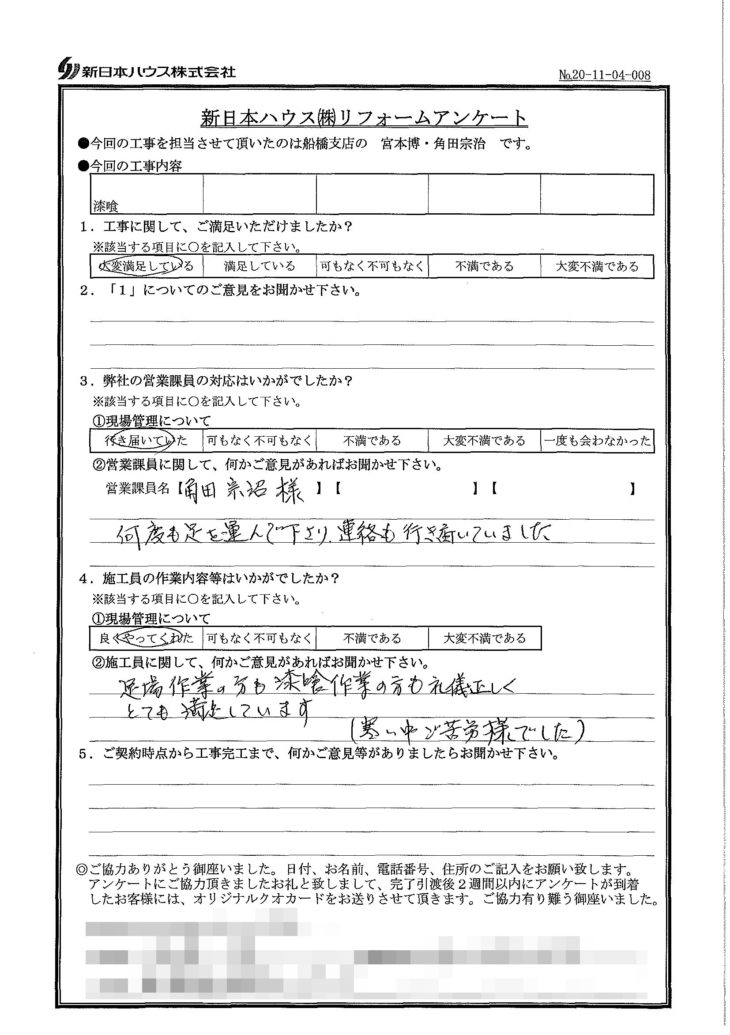 新日本ハウス株式会社
№20-11-04-008
新日本ハウス㈱リフォームアンケート
●今回の工事を担当させて頂いたのは船橋支店の 宮本博・角田宗治 です。
●今回の工事内容
漆喰
1．工事に関して、ご満足いただけましたか？
※該当する項目に○を記入して下さい。
大変満足している 満足している 可もなく不可もなく 不満である 大変不満である
2．「1」についてのご意見をお聞かせ下さい。
3．弊社の営業課員の対応はいかがでしたか？
※該当する項目に○を記入して下さい。
①現場管理について
行き届いていた 可もなく不可もなく 不満である 大変不満である 一度も会わなかった
②営業課員に関して、何かご意見があればお聞かせ下さい。
営業課員名【角田宗沼様 】【 】【 】
何度も足を運んで下さり、連絡も行き届いていました
4．施工員の作業内容等はいかがでしたか？
※該当する項目に○を記入して下さい。
①現場管理について
良くやってくれた 可もなく不可もなく 不満である 大変不満である
②施工員に関して、何かご意見があればお聞かせ下さい。
足場作業の方も漆喰作業の方も礼儀正しく
とても満足しています
(寒い中ご苦労様でした)
5．ご契約時点から工事完工まで、何かご意見等がありましたらお聞かせ下さい。
◎ご協力ありがとう御座いました。日付、お名前、電話番号、住所のご記入をお願い致します。
アンケートにご協力頂きましたお礼と致しまして、完了引渡後2週間以内にアンケートが到着
したお客様には、オリジナルクオカードをお送りさせて頂きます。ご協力有り難う御座いました。